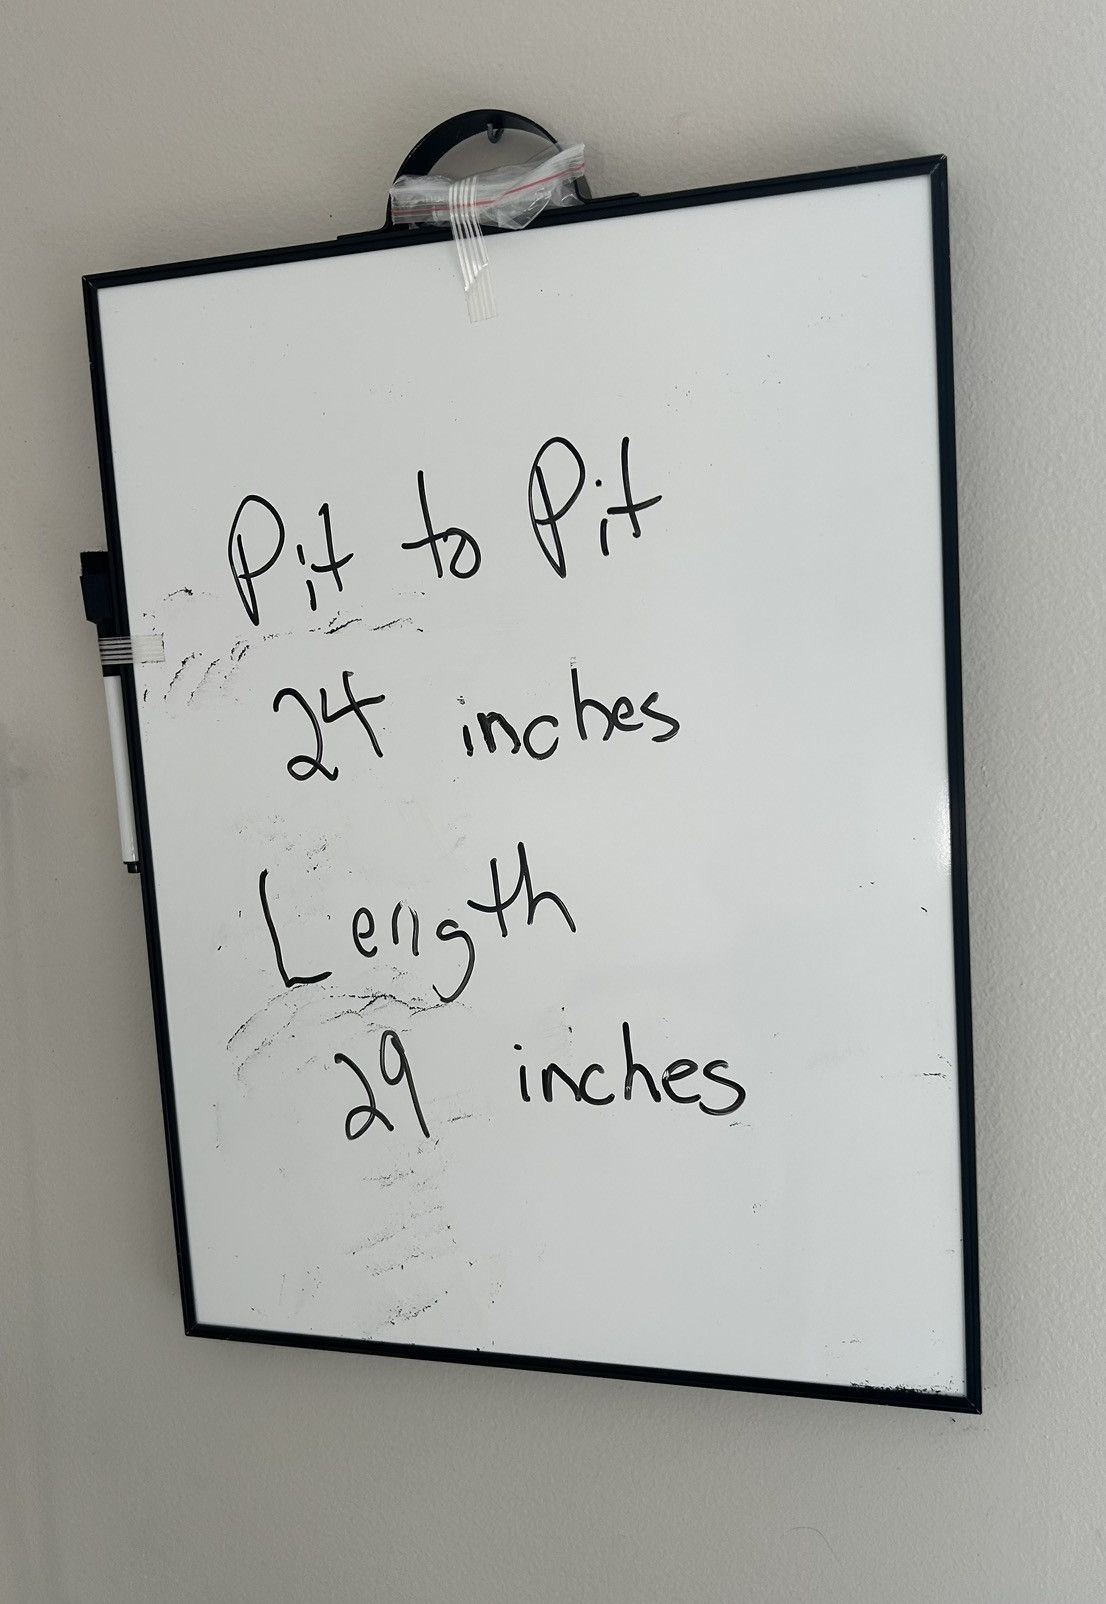 Pit to Pit
24 inches
Length
29 inches